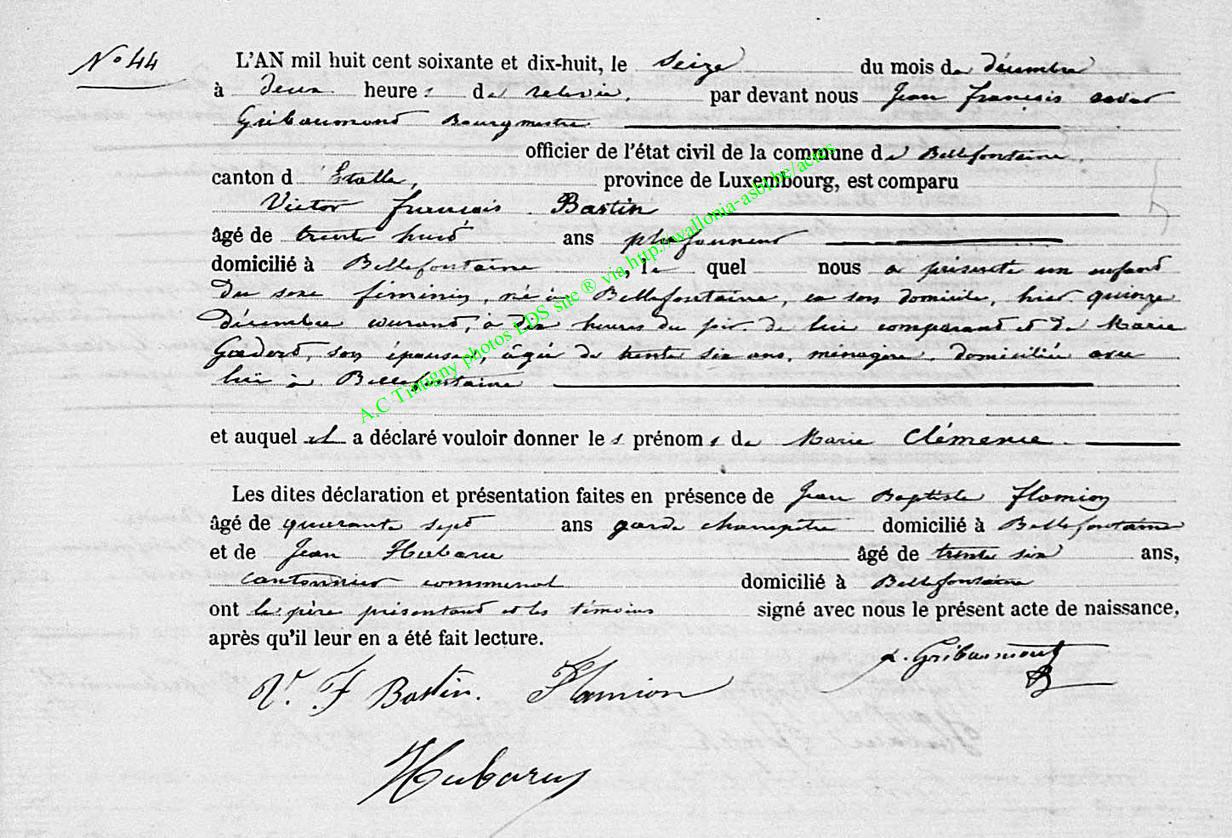 N° 44
L'AN mil huit cent soixante et dix-huit, le seize du mois de décembre
à deux heures de relevée, par devant nous Jean françois
Gribaumont Bourgmestre
officier de l'état civil de la commune de Bellefontaine,
canton d'Etalle, province de Luxembourg, est comparu
Victor françois Bastin
âgé de trente huit ans plafonneur
domicilié à Bellefontaine, le quel nous a présenté un enfant
du sexe féminin, né à Bellefontaine, en son domicile, hier quinze
décembre courant, à dix heures du soir de lui comparant et de Marie
son épouse, âgée de trente six ans, menagère, domiciliée avec
lui à Bellefontaine
et auquel il a déclaré vouloir donner les prénoms de Marie Clémence
Les dites déclaration et présentation faites en présence de Jean Baptiste Flamion
âgé de quarante sept ans garde champêtre domicilié à Bellefontaine
et de Jean âgé de trente six ans,
cantonnier communal domicilié à Bellefontaine
ont le père présentant et les témoins signé avec nous le présent acte de naissance,
après qu'il leur en a été fait lecture.
V. F Bastin. Flamion Gribaumont
A.C Tintigny photos LDS site ® via http://wallonia-asbl.be/actes